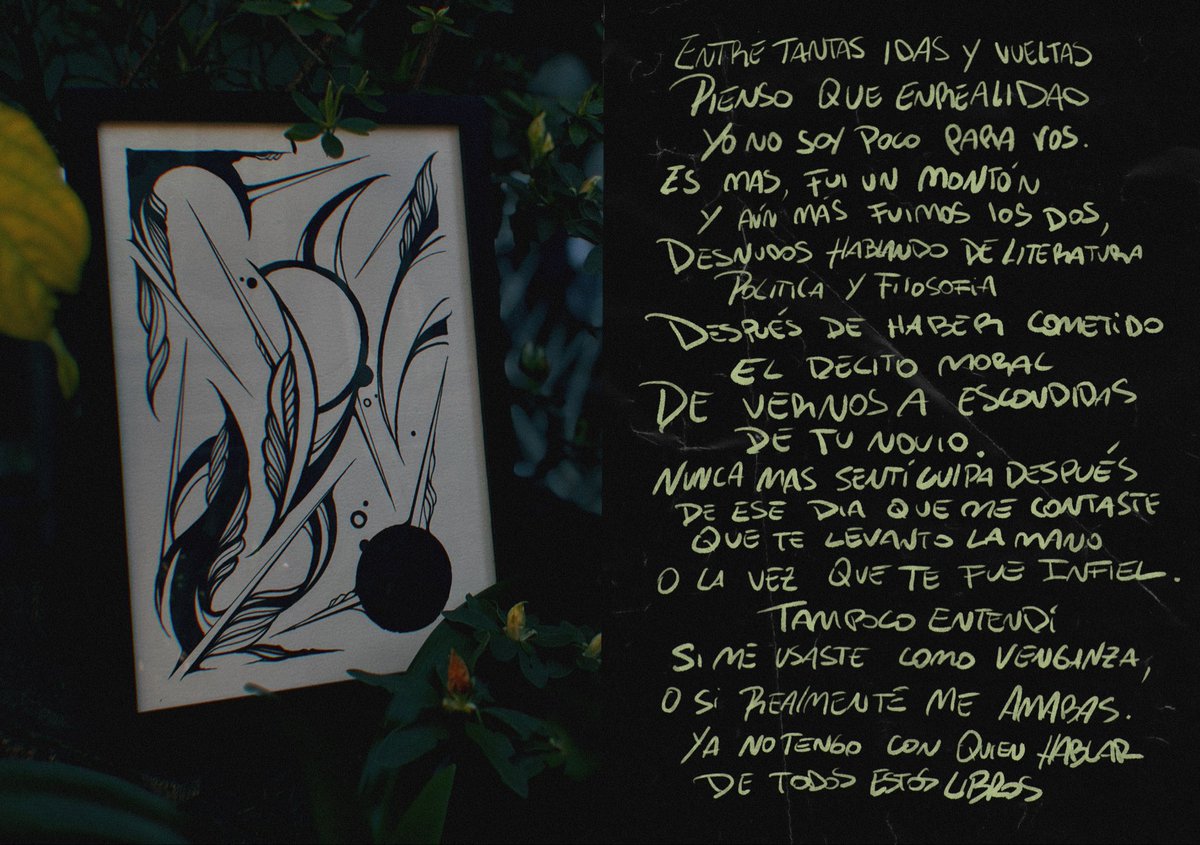 ENTRE TANTAS IDAS Y VUELTAS
PIENSO QUE ENREALIDAD
YO NO SOY POCO PARA VOS.
ES MAS, FUI UN MONTÓN
Y AÚN MÁS FUIMOS LOS DOS,
DESNUDOS HABLANDO DE LITERATURA
POLITICA Y FILOSOFIA
DESPUÉS DE HABER COMETIDO
EL DELITO MORAL
DE VERNOS A ESCONDIDAS
DE TU NOVIO.
NUNCA MAS SENTÍ CULPA DESPUÉS
DE ESE DIA QUE ME CONTASTE
QUE TE LEVANTO LA MANO
O LA VEZ QUE TE FUE INFIEL.
TAMPOCO ENTENDÍ
SI ME USASTE COMO VENGANZA,
O SI REALMENTE ME AMABAS.
YA NO TENGO CON QUIEN HABLAR
DE TODOS ESTOS LIBROS